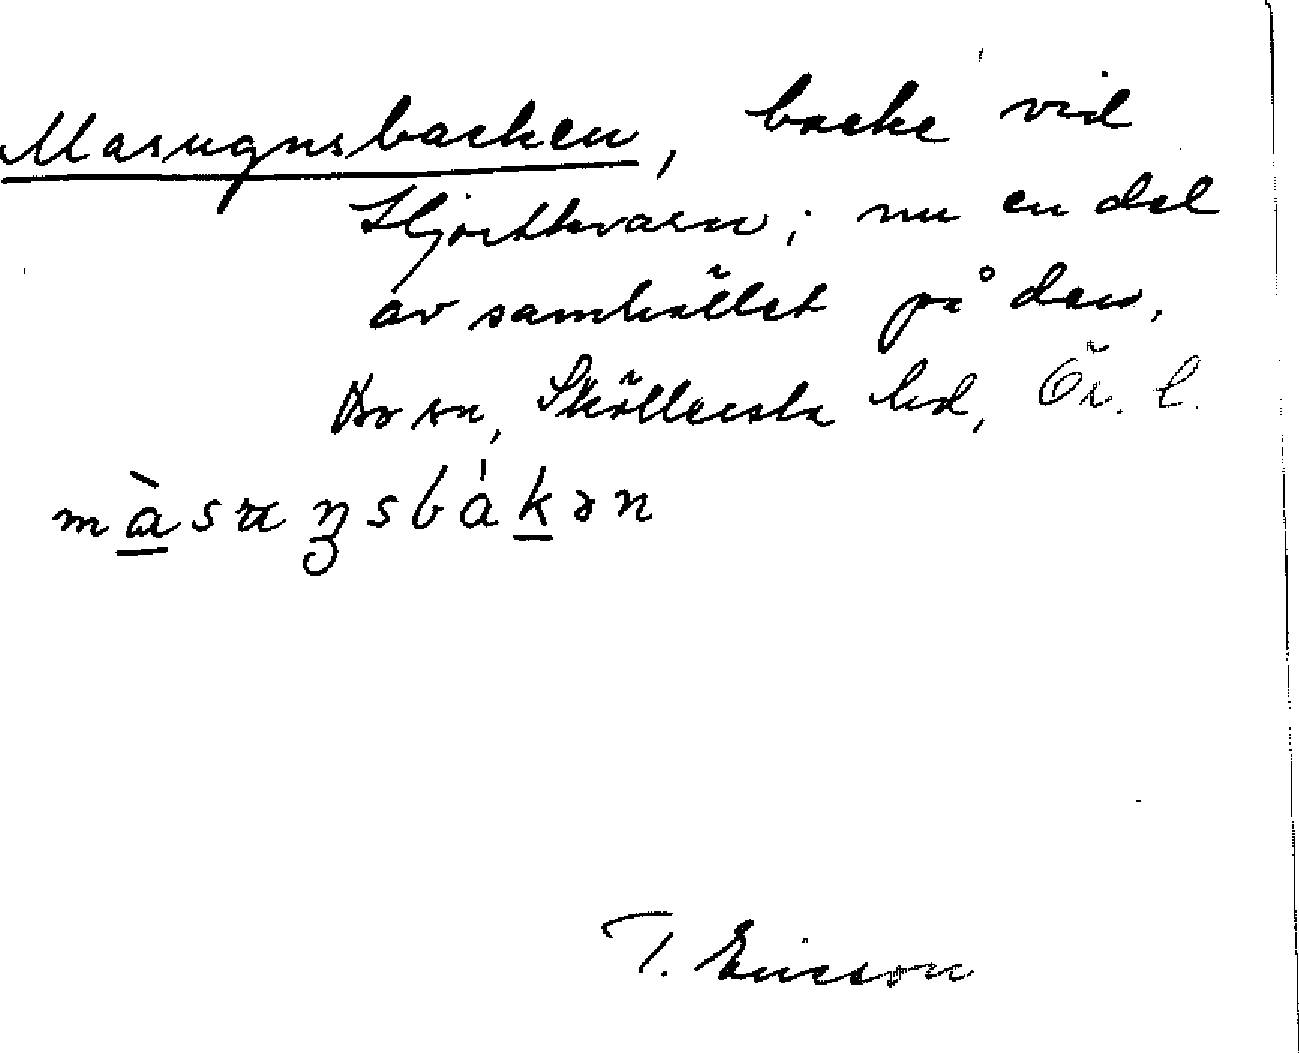 Masugnsbacken, backe vid
Hjortkvarn; nu en del
av samhället på den,
Bo sn, Sköllersta hd, Ör. l.
màsuŋsbákən
T. Ericson